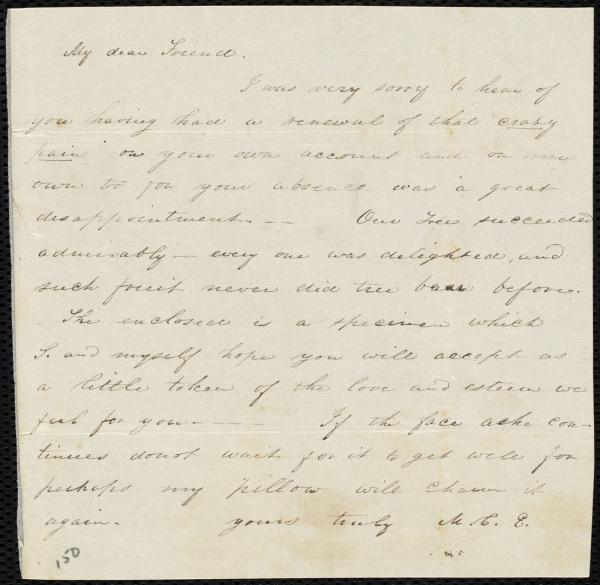 My dear Friend.
I was very sorry to hear of
you having had a renewal of that "crazy
pain" on your own account and on my
own too for your absence was a great
disappointment. — — Our Tree succeeded
admirably — every one was delighted, and
such fruit never did tree bear before.
The enclosed is a specimen which
S. and myself hope you will accept as
a little token of the love and esteem we
feel for you. — — — If the face ache con-
tinues do not wait for it to get well for
perhaps my pillow will charm it
again. yours truly M. E.
150